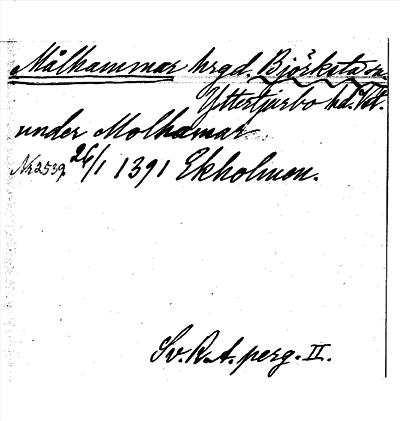 Målhammar hrgd. Björksta sn.
Yttertjurbo hd. Vstm.
under Molhamar
Nr 2539 26/1 1391 Ekholmen.
Sv. R. A. perg. II.